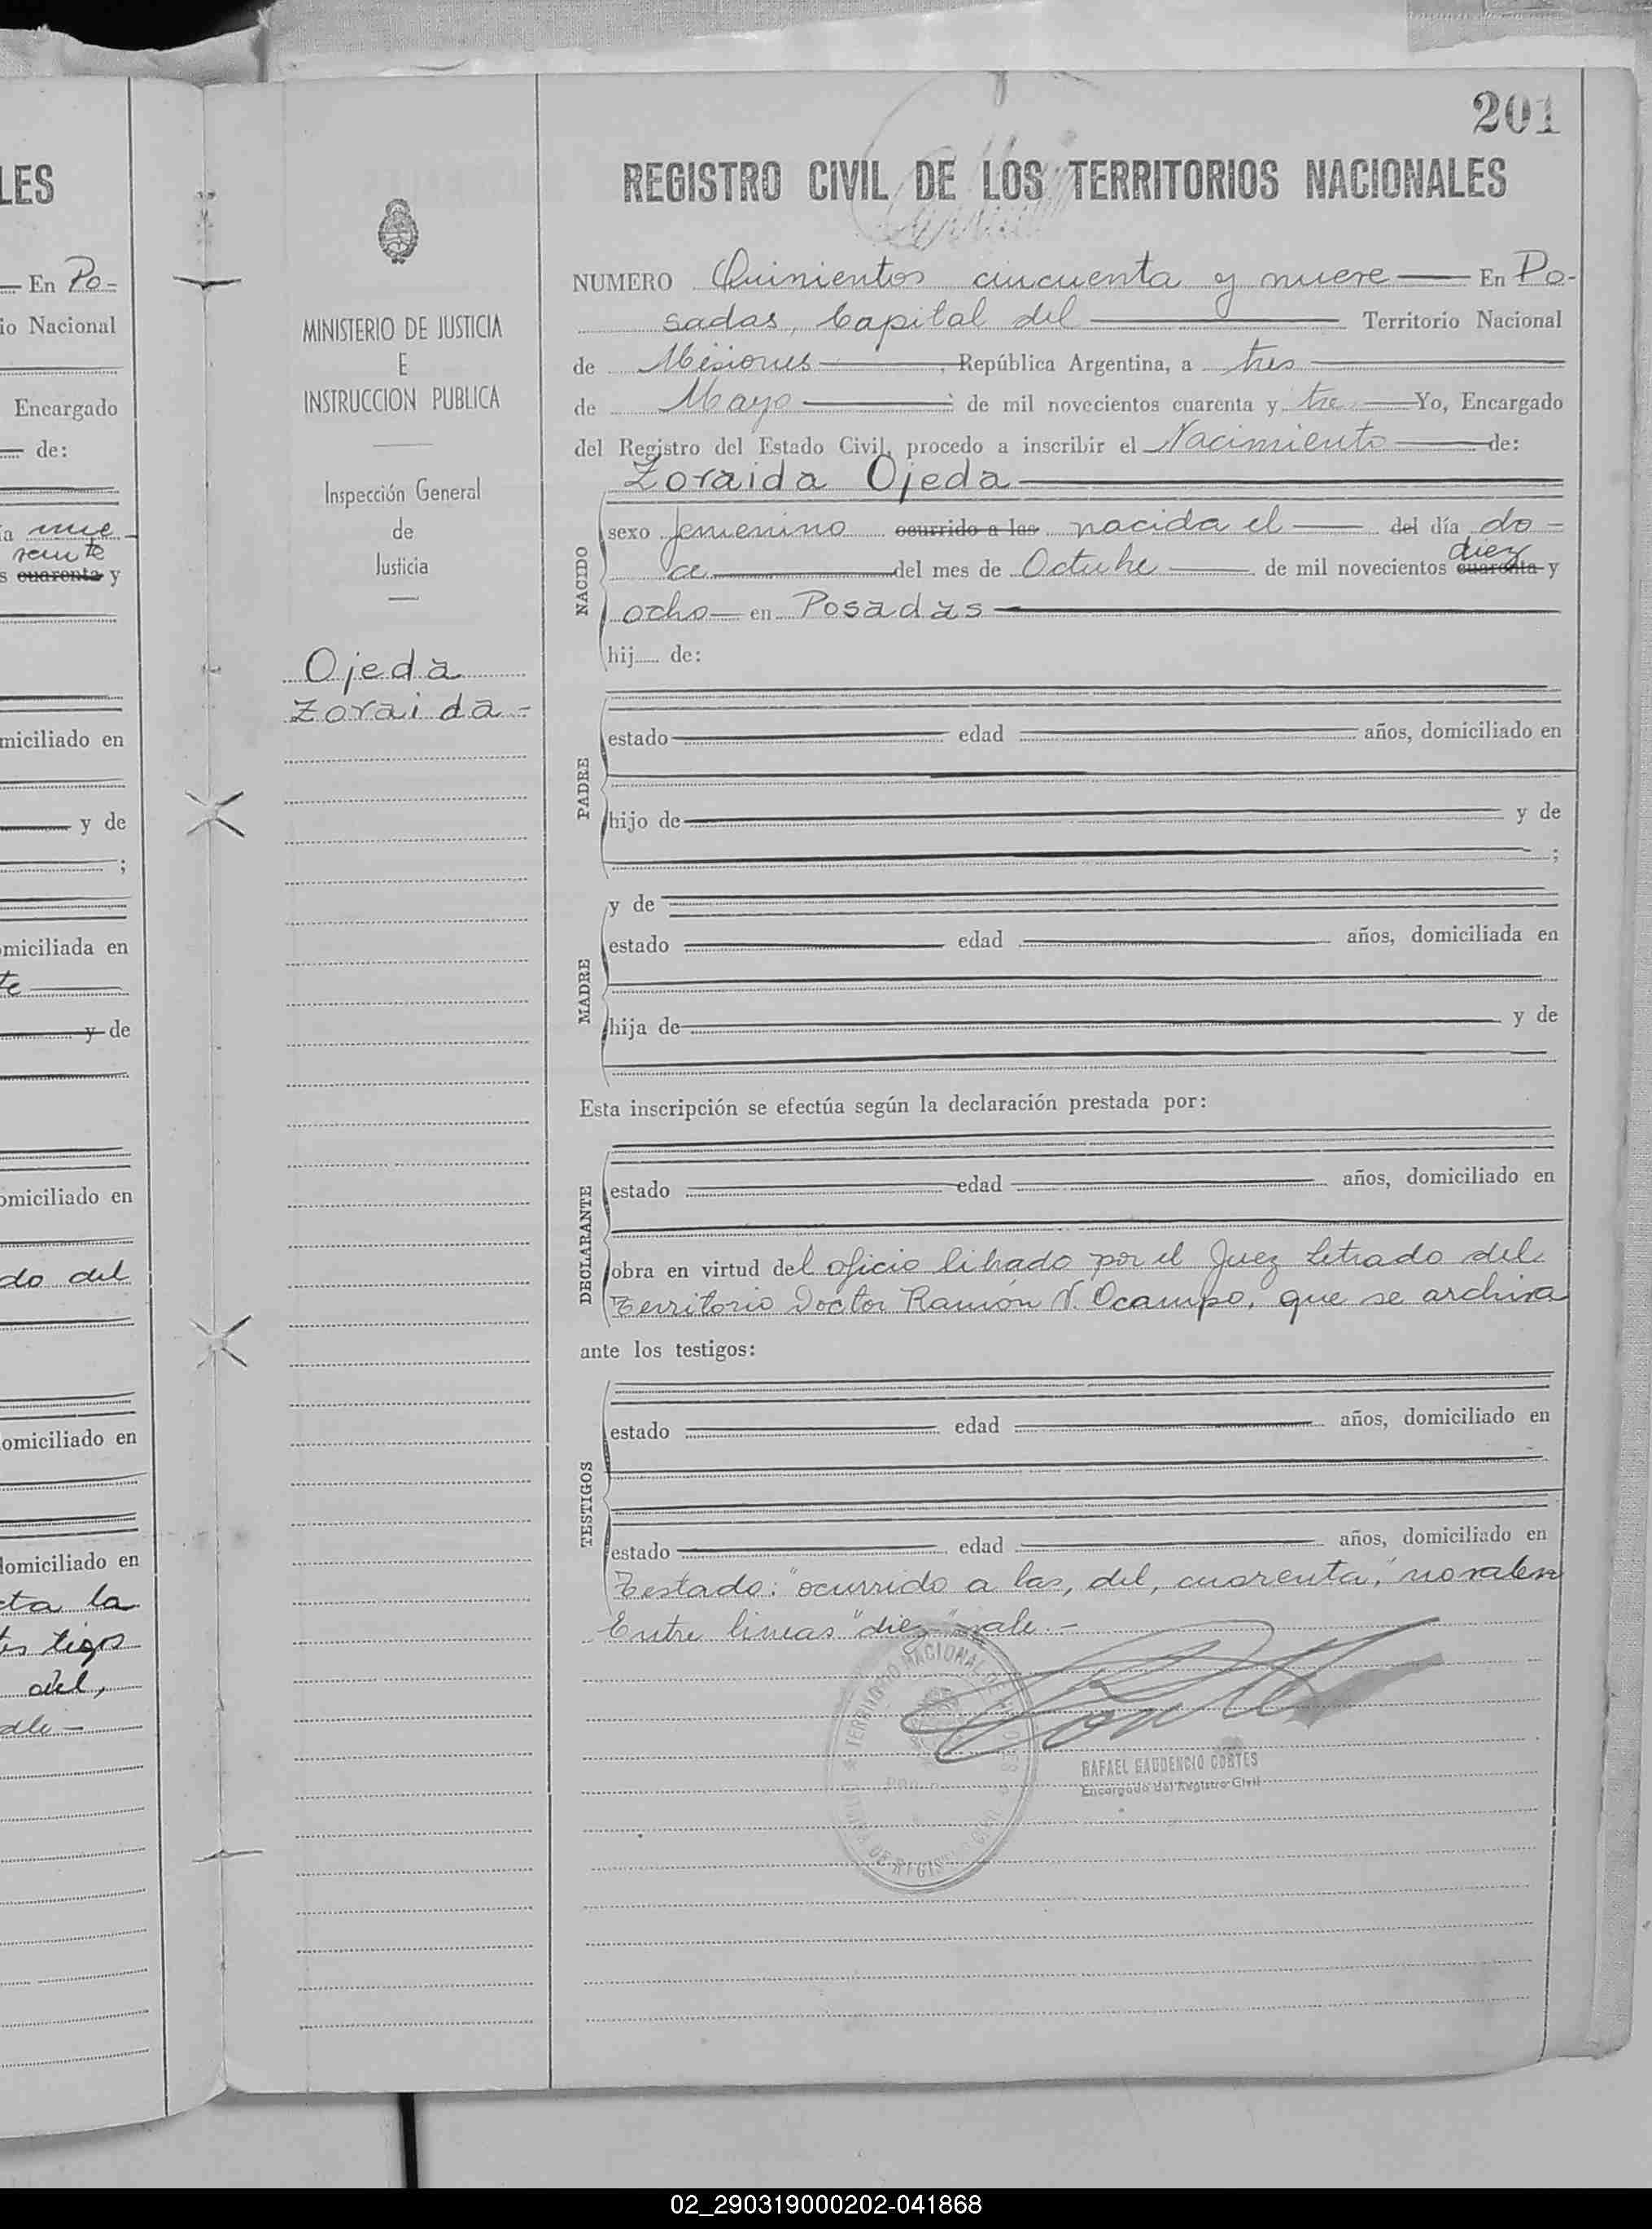 201
REGISTRO CIVIL DE LOS TERRITORIOS NACIONALES
MINISTERIO DE JUSTICIA
E
INSTRUCCION PUBLICA
Inspección General
de
Justicia
Ojeda
Zoraida.-
NUMERO Quinientos cincuenta y nueve — En Po-
sadas, Capital del — Territorio Nacional
de Misiones —, República Argentina, a tres —
de Mayo — de mil novecientos cuarenta y tres — Yo, Encargado
del Registro del Estado Civil, procedo a inscribir el Nacimiento — de:
Zoraida Ojeda —
NACIDO
sexo femenino ocurrido a las nacida el — del día do-
diez
ce — del mes de Octubre — de mil novecientos cuarenta y
ocho — en Posadas —
hij de:
PADRE
estado — edad — años, domiciliado en
hijo de — y de
;
MADRE
y de
estado — edad — años, domiciliada en
hija de — y de
Esta inscripción se efectúa según la declaración prestada por:
DECLARANTE
estado — edad — años, domiciliado en
obra en virtud del oficio librado por el Juez Letrado del
Territorio Doctor Ramón V. Ocampo, que se archiva
ante los testigos:
TESTIGOS
estado — edad — años, domiciliado en
estado — edad — años, domiciliado en
Testado: "ocurrido a las, del, cuarenta," no valen
Entre lineas "diez" vale.-
RAFAEL GAUDENCIO CORTES
Encargado del Registro Civil
LES
— En Po-
io Nacional
Encargado
— de:
y
miciliado en
— y de
;
omiciliada en
te —
y de
omiciliado en
do del
omiciliado en
domiciliado en
cta la
del,
02_290319000202-041868